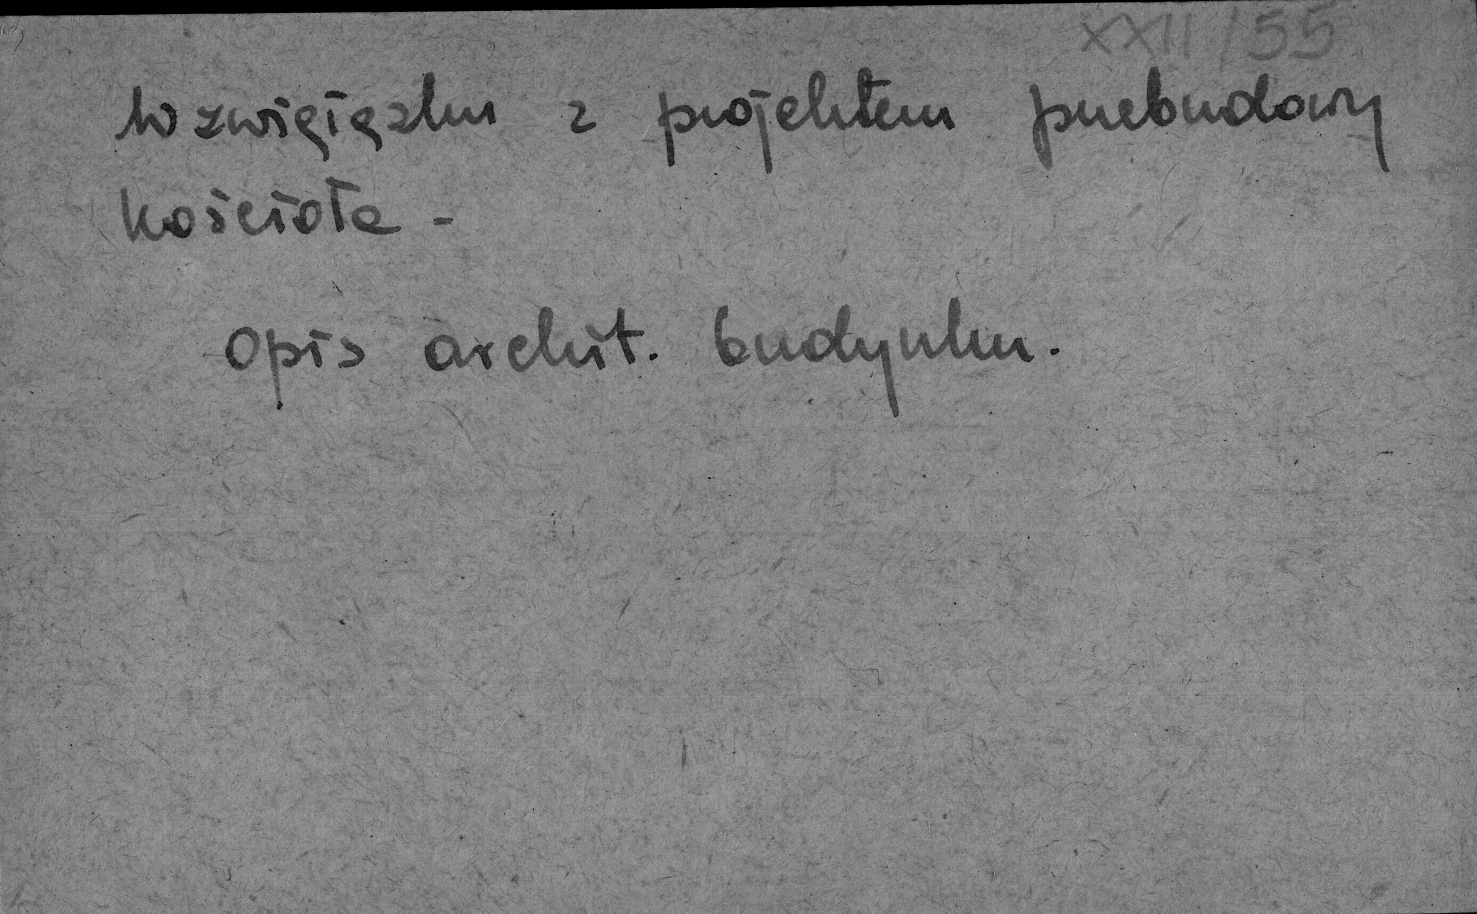 XXII/55
W związku z projektem przebudowy
kościoła -
Opis archit. budynku.